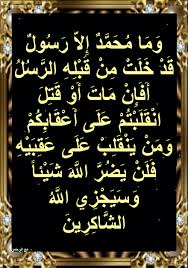 وَمَا مُحَمَّدٌ إِلاَّ رَسُولٌ
قَدْ خَلَتْ مِنْ قَبْلِهِ الرُّسُلُ
أَفَإِنْ مَاتَ أَوْ قُتِلَ
انْقَلَبْتُمْ عَلَى أَعْقَابِكُمْ
وَمَنْ يَنْقَلِبْ عَلَى عَقِبَيْهِ
فَلَنْ يَضُرَّ اللَّهَ شَيْئاً
وَسَيَجْزِي اللَّهُ
الشَّاكِرِينَ